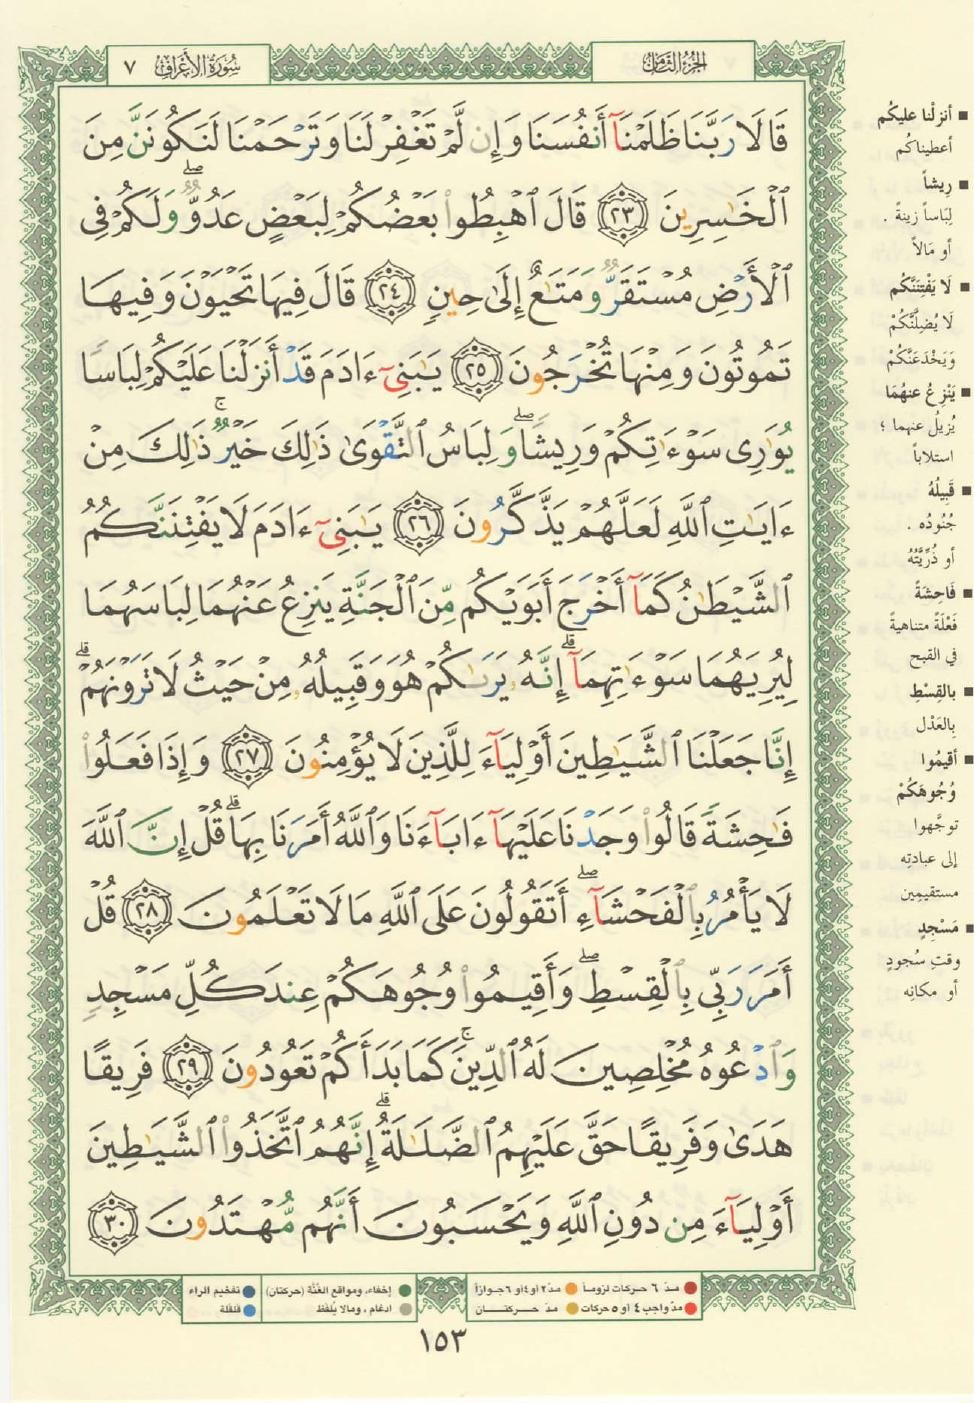 سُورَةُ الأَعْرَافِ ٧
الجُزْءُ الثَّامِنُ
قَالَا رَبَّنَا ظَلَمْنَآ أَنفُسَنَا وَإِن لَّمْ تَغْفِرْ لَنَا وَتَرْحَمْنَا لَنَكُونَنَّ مِنَ
ٱلْخَٰسِرِينَ ٢٣ قَالَ ٱهْبِطُوا۟ بَعْضُكُمْ لِبَعْضٍ عَدُوٌّ ۖ وَلَكُمْ فِى
ٱلْأَرْضِ مُسْتَقَرٌّ وَمَتَٰعٌ إِلَىٰ حِينٍ ٢٤ قَالَ فِيهَا تَحْيَوْنَ وَفِيهَا
تَمُوتُونَ وَمِنْهَا تُخْرَجُونَ ٢٥ يَٰبَنِىٓ ءَادَمَ قَدْ أَنزَلْنَا عَلَيْكُمْ لِبَاسًا
يُوَٰرِى سَوْءَٰتِكُمْ وَرِيشًا ۖ وَلِبَاسُ ٱلتَّقْوَىٰ ذَٰلِكَ خَيْرٌ ۚ ذَٰلِكَ مِنْ
ءَايَٰتِ ٱللَّهِ لَعَلَّهُمْ يَذَّكَّرُونَ ٢٦ يَٰبَنِىٓ ءَادَمَ لَا يَفْتِنَنَّكُمُ
ٱلشَّيْطَٰنُ كَمَآ أَخْرَجَ أَبَوَيْكُم مِّنَ ٱلْجَنَّةِ يَنزِعُ عَنْهُمَا لِبَاسَهُمَا
لِيُرِيَهُمَا سَوْءَٰتِهِمَآ ۗ إِنَّهُۥ يَرَىٰكُمْ هُوَ وَقَبِيلُهُۥ مِنْ حَيْثُ لَا تَرَوْنَهُمْ ۗ
إِنَّا جَعَلْنَا ٱلشَّيَٰطِينَ أَوْلِيَآءَ لِلَّذِينَ لَا يُؤْمِنُونَ ٢٧ وَإِذَا فَعَلُوا۟
فَٰحِشَةً قَالُوا۟ وَجَدْنَا عَلَيْهَآ ءَابَآءَنَا وَٱللَّهُ أَمَرَنَا بِهَا ۗ قُلْ إِنَّ ٱللَّهَ
لَا يَأْمُرُ بِٱلْفَحْشَآءِ ۖ أَتَقُولُونَ عَلَى ٱللَّهِ مَا لَا تَعْلَمُونَ ٢٨ قُلْ
أَمَرَ رَبِّى بِٱلْقِسْطِ ۖ وَأَقِيمُوا۟ وُجُوهَكُمْ عِندَ كُلِّ مَسْجِدٍ
وَٱدْعُوهُ مُخْلِصِينَ لَهُ ٱلدِّينَ ۚ كَمَا بَدَأَكُمْ تَعُودُونَ ٢٩ فَرِيقًا
هَدَىٰ وَفَرِيقًا حَقَّ عَلَيْهِمُ ٱلضَّلَٰلَةُ ۗ إِنَّهُمُ ٱتَّخَذُوا۟ ٱلشَّيَٰطِينَ
أَوْلِيَآءَ مِن دُونِ ٱللَّهِ وَيَحْسَبُونَ أَنَّهُم مُّهْتَدُونَ ٣٠
■ أنزلْنا عليكُم
أعطيناكُم
■ رِيشاً
لِبَاساً زينةً .
أو مَالاً
■ لَا يَفْتِنَنَّكُم
لَا يُضِلَّنَّكُمْ
وَيَخْدَعَنَّكُمْ
■ يَنْزِعُ عنهُمَا
يُزيلُ عنهما ؛
استلاباً
■ قَبِيلُهُ
جُنُودُه .
أو ذُرِّيَّتُهُ
■ فَاحِشَةً
فَعْلَةً متناهيةً
في القبح
■ بالقِسْطِ
بِالعَدْل
■ أقيمُوا
وُجُوهَكُمْ
توجَّهوا
إلى عبادتِه
مستقيمِين
■ مَسْجِدٍ
وقتِ سُجودٍ
أو مكانِه
● مدّ ٦ حركات لزوماً ● مدّ ٢ أو ٤ أو ٦ جوازاً
● مدّ واجب ٤ أو ٥ حركات ● مدّ حركتان
● إخفاء، ومواقع الغُنَّة (حركتان) ● تفخيم الراء
● ادغام ، ومالا يُلفَظ ● قلقلة
١٥٣